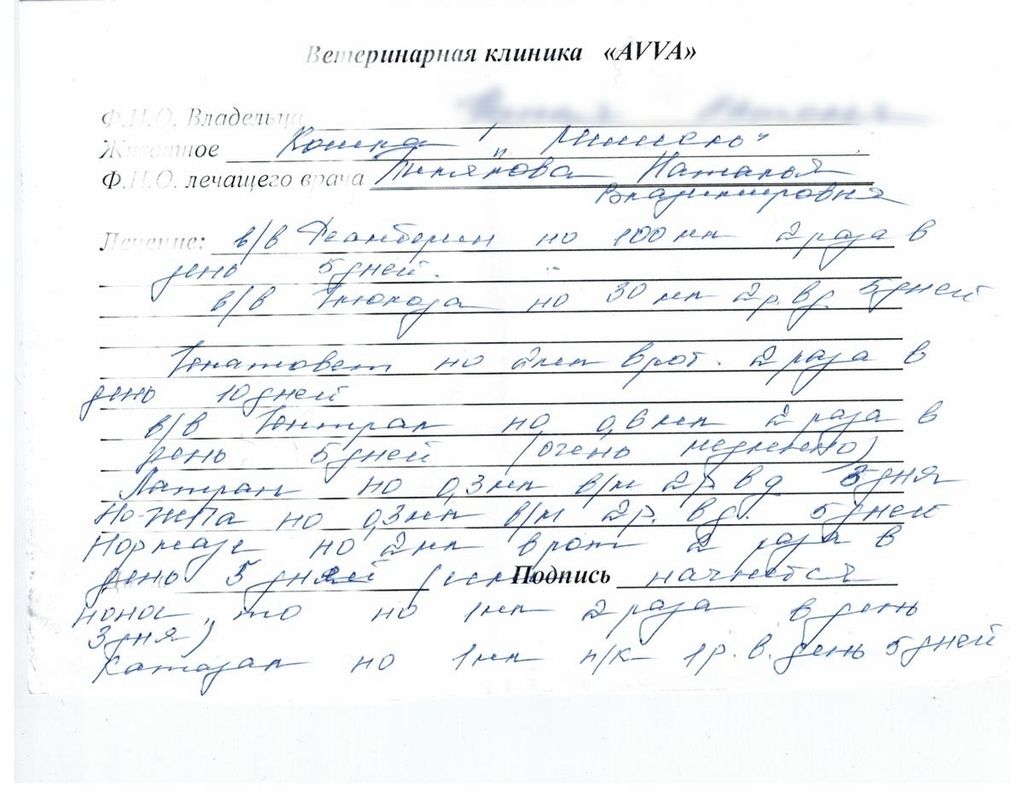 Ветеринарная клиника «AVVA»
Ф.И.О. Владельца
Животное Кошка "Мишель"
Ф.И.О. лечащего врача Наталья
Владимировна
Лечение: в/в Реамберин по 100 мл 2 раза в
день 5 дней.
в/в Глюкоза по 30 мл 2 р. в д. 5 дней
Гепатовет по 2 мл в рот. 2 раза в
день 10 дней
в/в Гептрал по 0,6 мл 2 раза в
день 5 дней (очень медленно)
Латран по 0,3 мл в/м 2 р в д 3 дня
Но-шпа по 0,3 мл в/м 2 р. в д. 5 дней
Нормазе по 2 мл в рот 2 раза в
день 5 дней (если Подпись начнется
понос, то по 1 мл 2 раза в день
3 дня)
Катозал по 1 мл п/к 1 р. в. день 5 дней